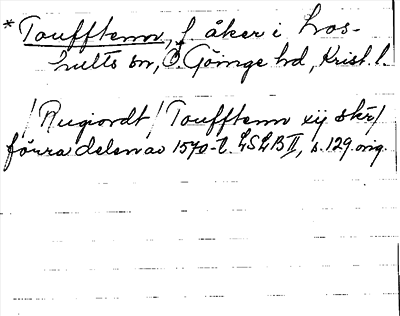 * Toufftenn, f. åker i Los-
hults sn, Ö. Göinge hd, Krist. l.
/Rugiordt/ Toufftenn xij skr/
förra delen av 1570-t. LSLB II, s. 129 orig.